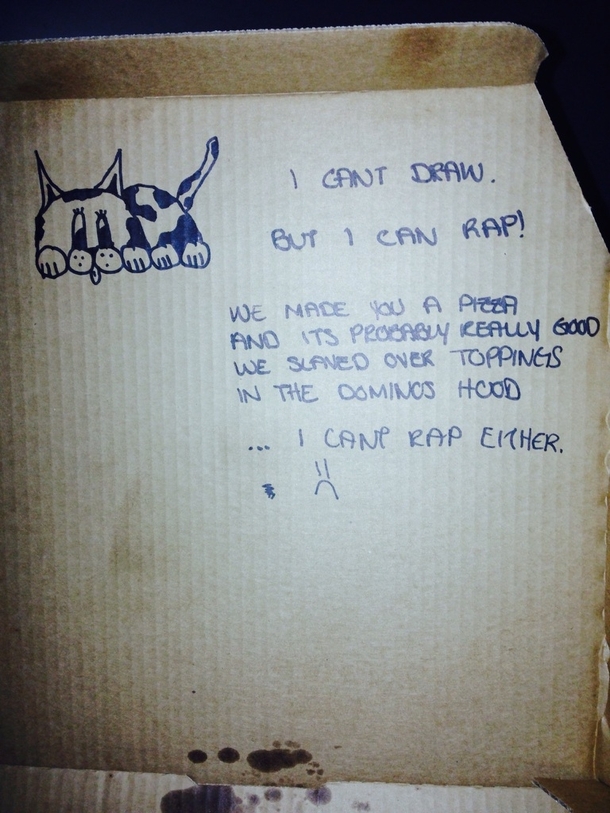 I CANT DRAW.
BUT I CAN RAP!
WE MADE YOU A PIZZA
AND ITS PROBABLY REALLY GOOD
WE SLAVED OVER TOPPINGS
IN THE DOMINOS HOOD
... I CANT RAP EITHER.